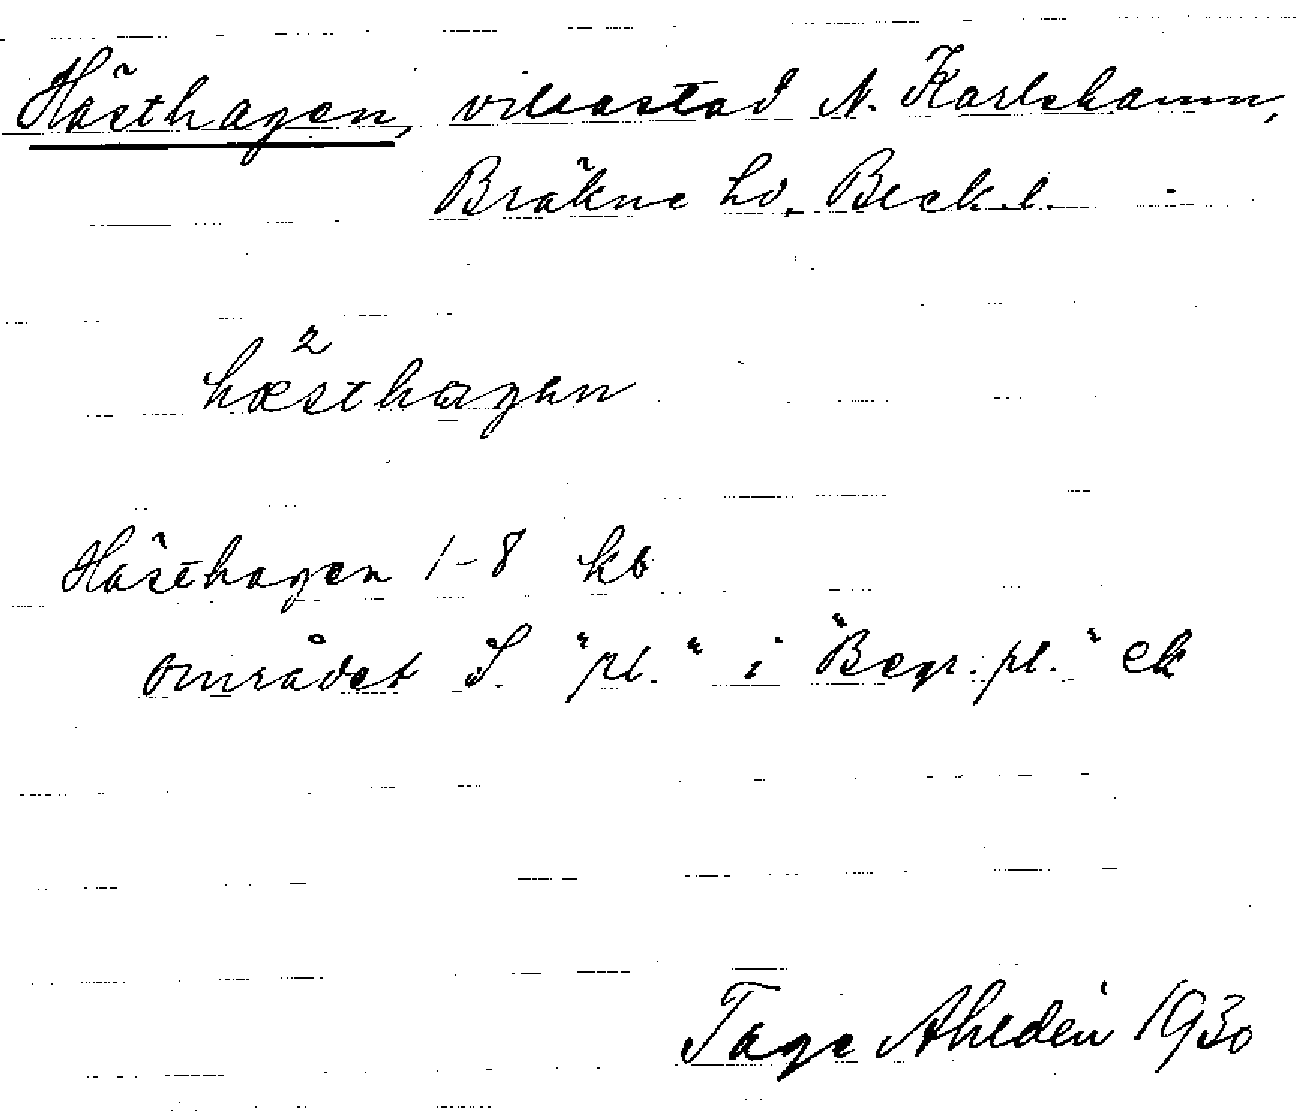 Hästhagen, villastad N. Karlshamn,
Bräkne hd. Blek. l.
hæ²sthagen
Hästhagen 1-8 kb
området S. "pl." i "Begr.pl." ek
Tage Ahldén 1930